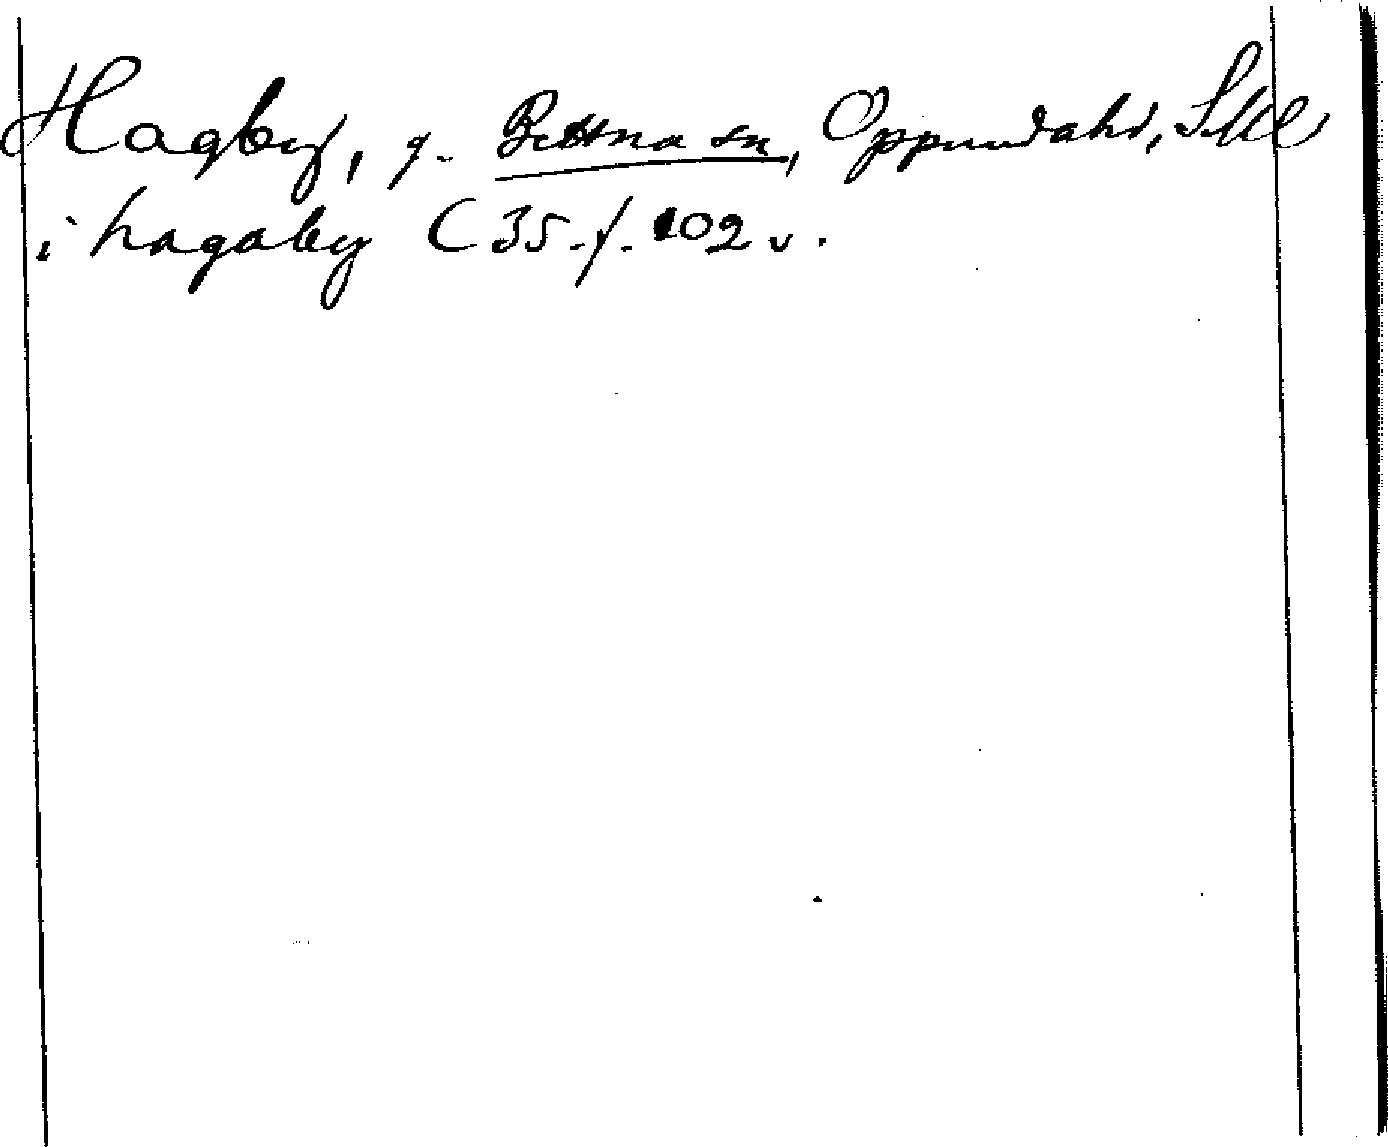 Hagby, g. Bettna sn, Oppunda hd, Sdl
i hagaby C 35. f. 102 v.